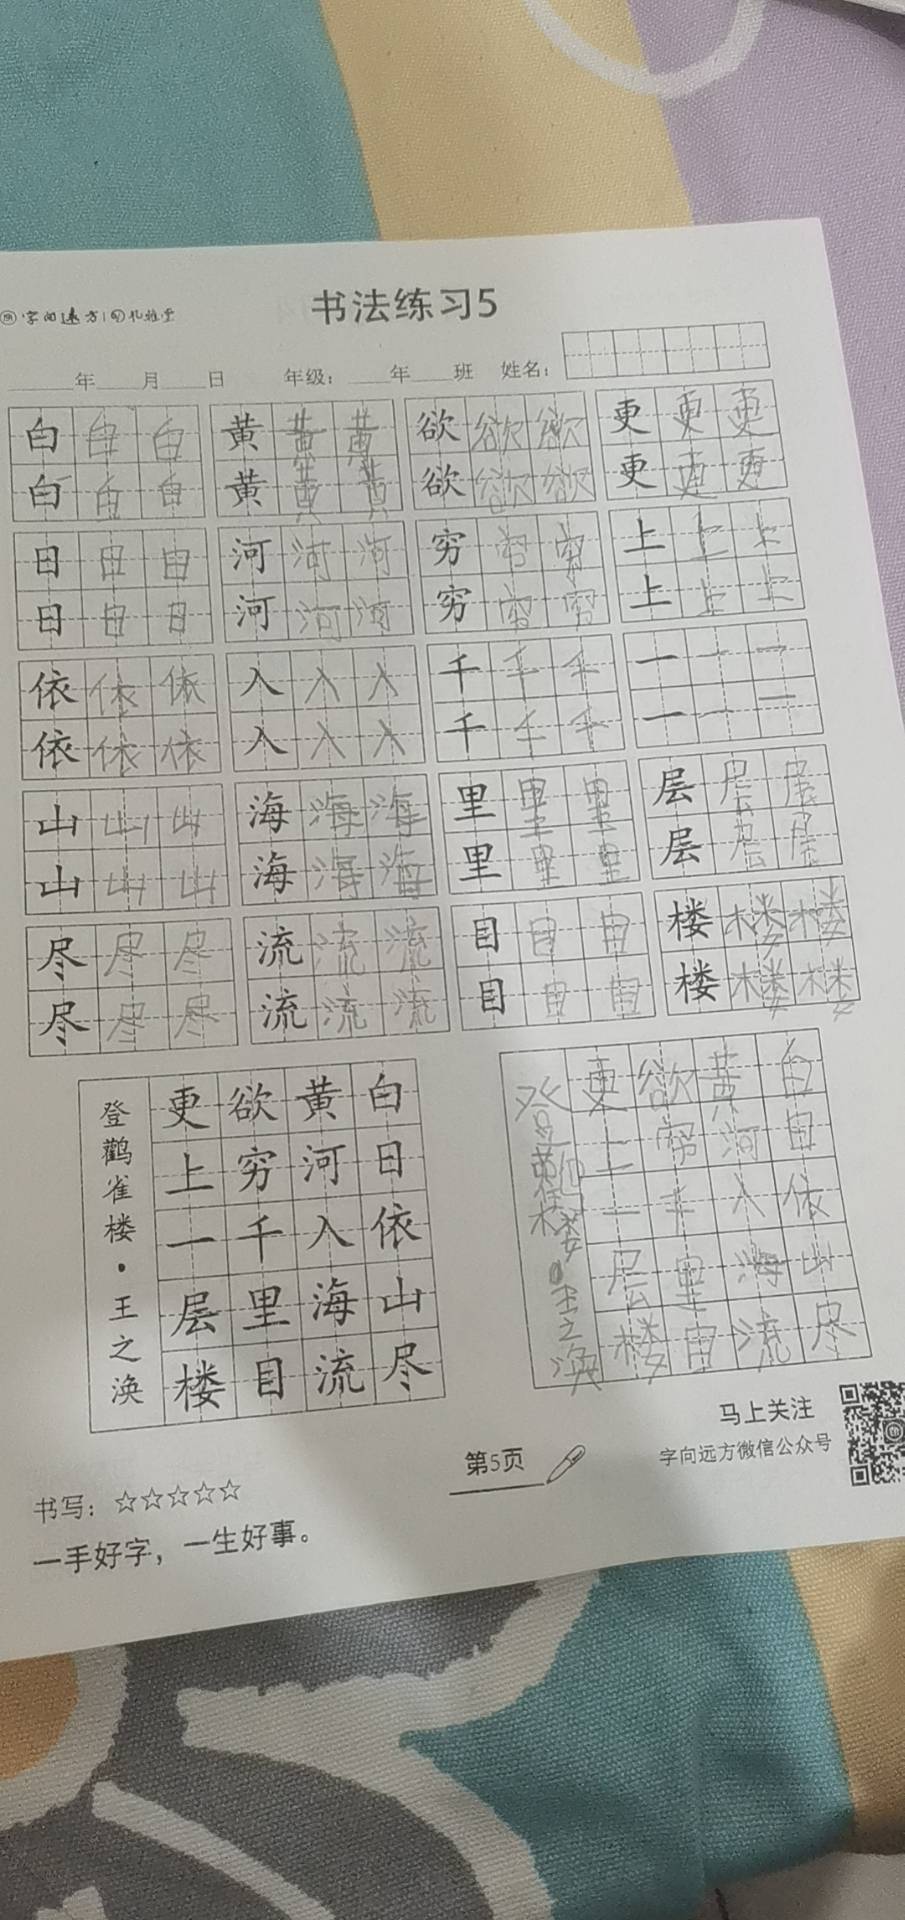 字向远方 礼雅堂
书法练习5
年 月 日 年级： 年 班 姓名：
白 白 白 黄 黄 黄 欲 欲 欲 更 更 更
白 白 白 黄 黄 黄 欲 欲 欲 更 更 更
日 日 日 河 河 河 穷 穷 穷 上 上 上
日 日 日 河 河 河 穷 穷 穷 上 上 上
依 依 依 入 入 入 千 千 千 一 一 一
依 依 依 入 入 入 千 千 千 一 一 一
山 山 山 海 海 海 里 里 里 层 层 层
山 山 山 海 海 海 里 里 里 层 层 层
尽 尽 尽 流 流 流 目 目 目 楼 楼 楼
尽 尽 尽 流 流 流 目 目 目 楼 楼 楼
白日依山尽
黄河入海流
欲穷千里目
更上一层楼
登鹳雀楼·王之涣
白日依山尽
黄河入海流
欲穷千里目
更上一层楼
登鹳雀楼·王之涣
马上关注
字向远方微信公众号
第5页
书写：☆☆☆☆☆
一手好字，一生好事。